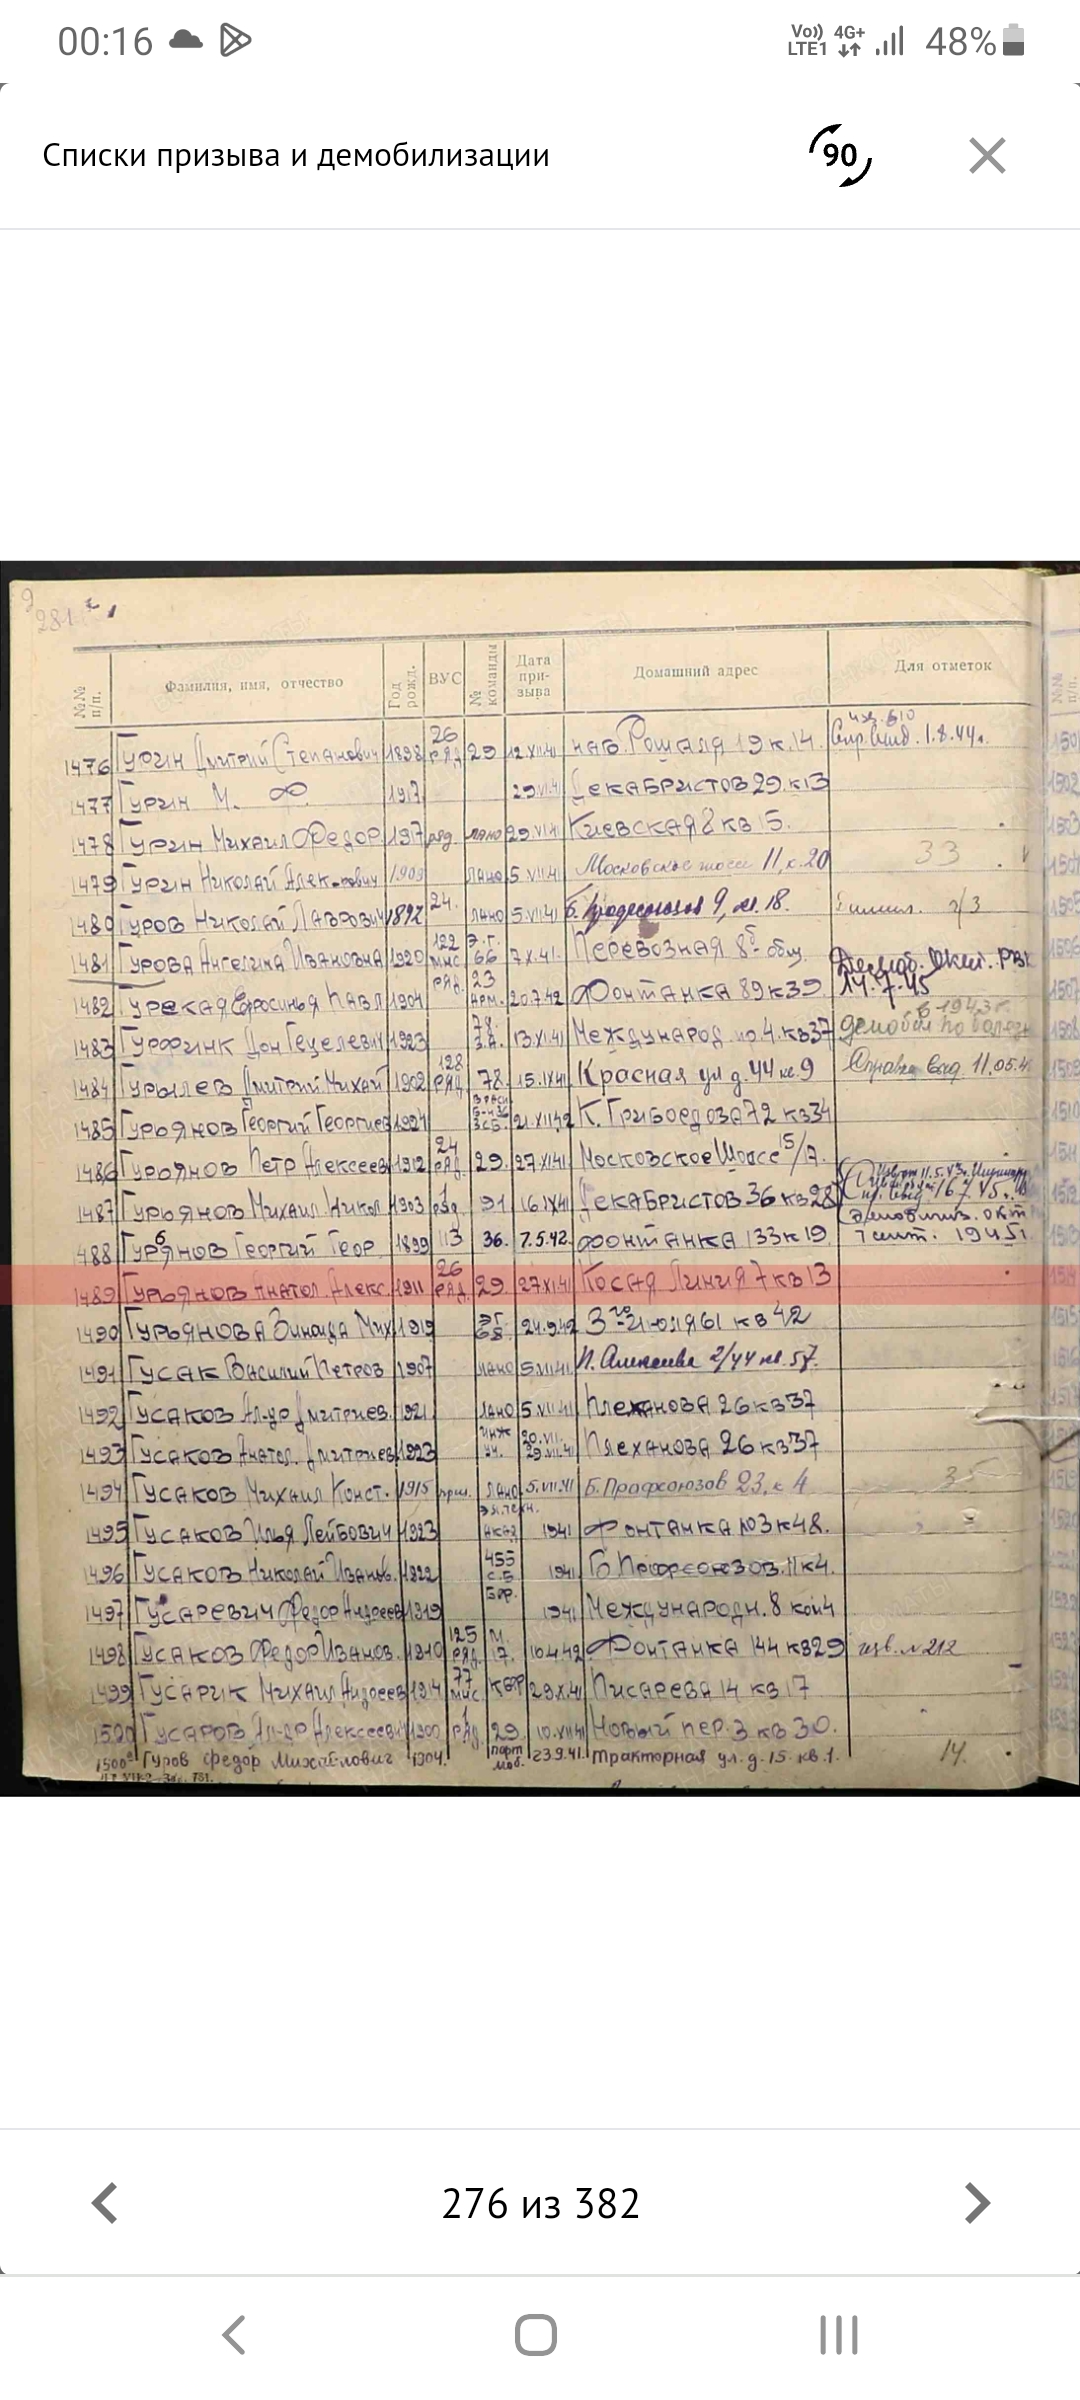 00:16
Vo)) LTE1 4G+ 48%
Списки призыва и демобилизации
90
281
№№ п/п. Фамилия, имя, отчество Год рожд. ВУС № команды Дата призыва Домашний адрес Для отметок
1476 Гурин Дмитрий Степанович 1898 26 ряд. 29 12.XII.41 наб. Рошаля 19 к. 14. 1.8.44г.
1477 Гурин М. 1917 29.VI.41 Декабристов 29. к 13
1478 Гурин Михаил Федор 1917 ряд. ЛАНО 29.VI.41 Киевская 8 кв 15.
1479 Гурин Николай Алек-ович 1909 ЛАНО 5.VII.41 Московское шоссе 11, к. 20 33
1480 Гуров Николай Лаврович 1892 24. ЛАНО 5.VII.41 Б. Профсоюзов 9, кв. 18.
1481 Гурова Ангелина Ивановна 1920 122 мнс Э.Г. 66 7.X.41. Перевозная 8 общ.
1482 Гурекая Ефросинья Павл 1904 ряд. 23 Арм. 20.7.42 Фонтанка 89 к 39 14.7.45
1483 Гурфинк Дон Гецелевич 1923 13.XI.41 Международ. 4. кв 37 в 1943г.
1484 Гурылев Дмитрий Михай 1902 128 ряд. 78. 15.IX.41 Красная ул д. 44 кв. 9 Справка выд. 11.05.4
1485 Гурьянов Георгий Георгиев 1924 21.XII.42 К. Грибоедова 72 кв 34
1486 Гурьянов Петр Алексеев 1912 24 ряд. 29. 27.XI.41 Московское Шоссе 15/7.
1487 Гурьянов Михаил Никол 1903 ряд. 91 16.IX.41 Декабристов 36 кв 28 16.7.45
1488 Гурьянов Георгий Геор. 1899 113 36. 7.5.42. Фонтанка 133 к 19. 1945г.
1489 Гурьянов Анатол. Алекс. 1911 26 ряд. 29. 27.XI.41 Косая Линия 7 кв 13
1490 Гурьянова Зинаида Мих 1919 ЭГ 68 24.9.42 3го Июля 61 кв 42
1491 Гусак Василий Петров 1907 ЛАНО 5.VII.41 П. Алексеева 2/44 кв. 57.
1492 Гусаков Ал-др Дмитриев. 1921 ЛАНО 5.VII.41 Плеханова 26 кв 37
1493 Гусаков Анатол. Дмитриев 1923 инж уч. 29.VII.41 Плеханова 26 кв 37
1494 Гусаков Михаил Конст. 1915 ЛАНО 5.VII.41 Б. Профсоюзов 23, к 4 35
1495 Гусаков Илья Лейбович 1923 1941 Фонтанка 103 к 48.
1496 Гусаков Николай Иванов. 1922 455 С.Б 1941 Б Профсоюзов. 11 к 4.
1497 Гусаревич Федор Андреев 1919 Бор. 1941 Международн. 8 ком 4
1498 Гусаков Федор Иванов. 1910 125 ряд. М. 17. 10.4.42 Фонтанка 144 кв 29 изв. №212
1499 Гусарик Михаил Андреев 1914 77 мнс КВФ 29.X.41 Писарева 14 кв 17
1500 Гусаров Ал-др Алексеевич 1900 ряд 29 10.VII.41 Новый пер. 3 кв 30.
1500а Гуров Федор Михайлович 1904. парт моб. 23.9.41. Тракторная ул. д. 15. кв. 1. 14.
276 из 382